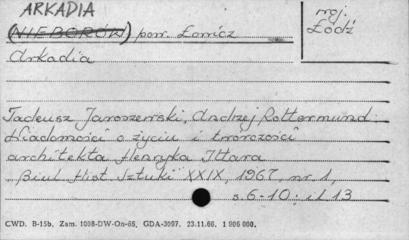 ARKADIA
(NIEBORÓW) pow. Łowicz
woj. Łódź
Arkadia
Tadeusz Jaroszewski, Andrzej Rottermund.
Wiadomości o życiu i twórczości
architekta Henryka Ittara
"Biul. Hist. Sztuki" XXIX, 1967, nr 1,
s. 6-10; il 13
CWD. B-15b. Zam. 1008-DW-On-65, GDA-3097. 23.11.66. 1 906 000.